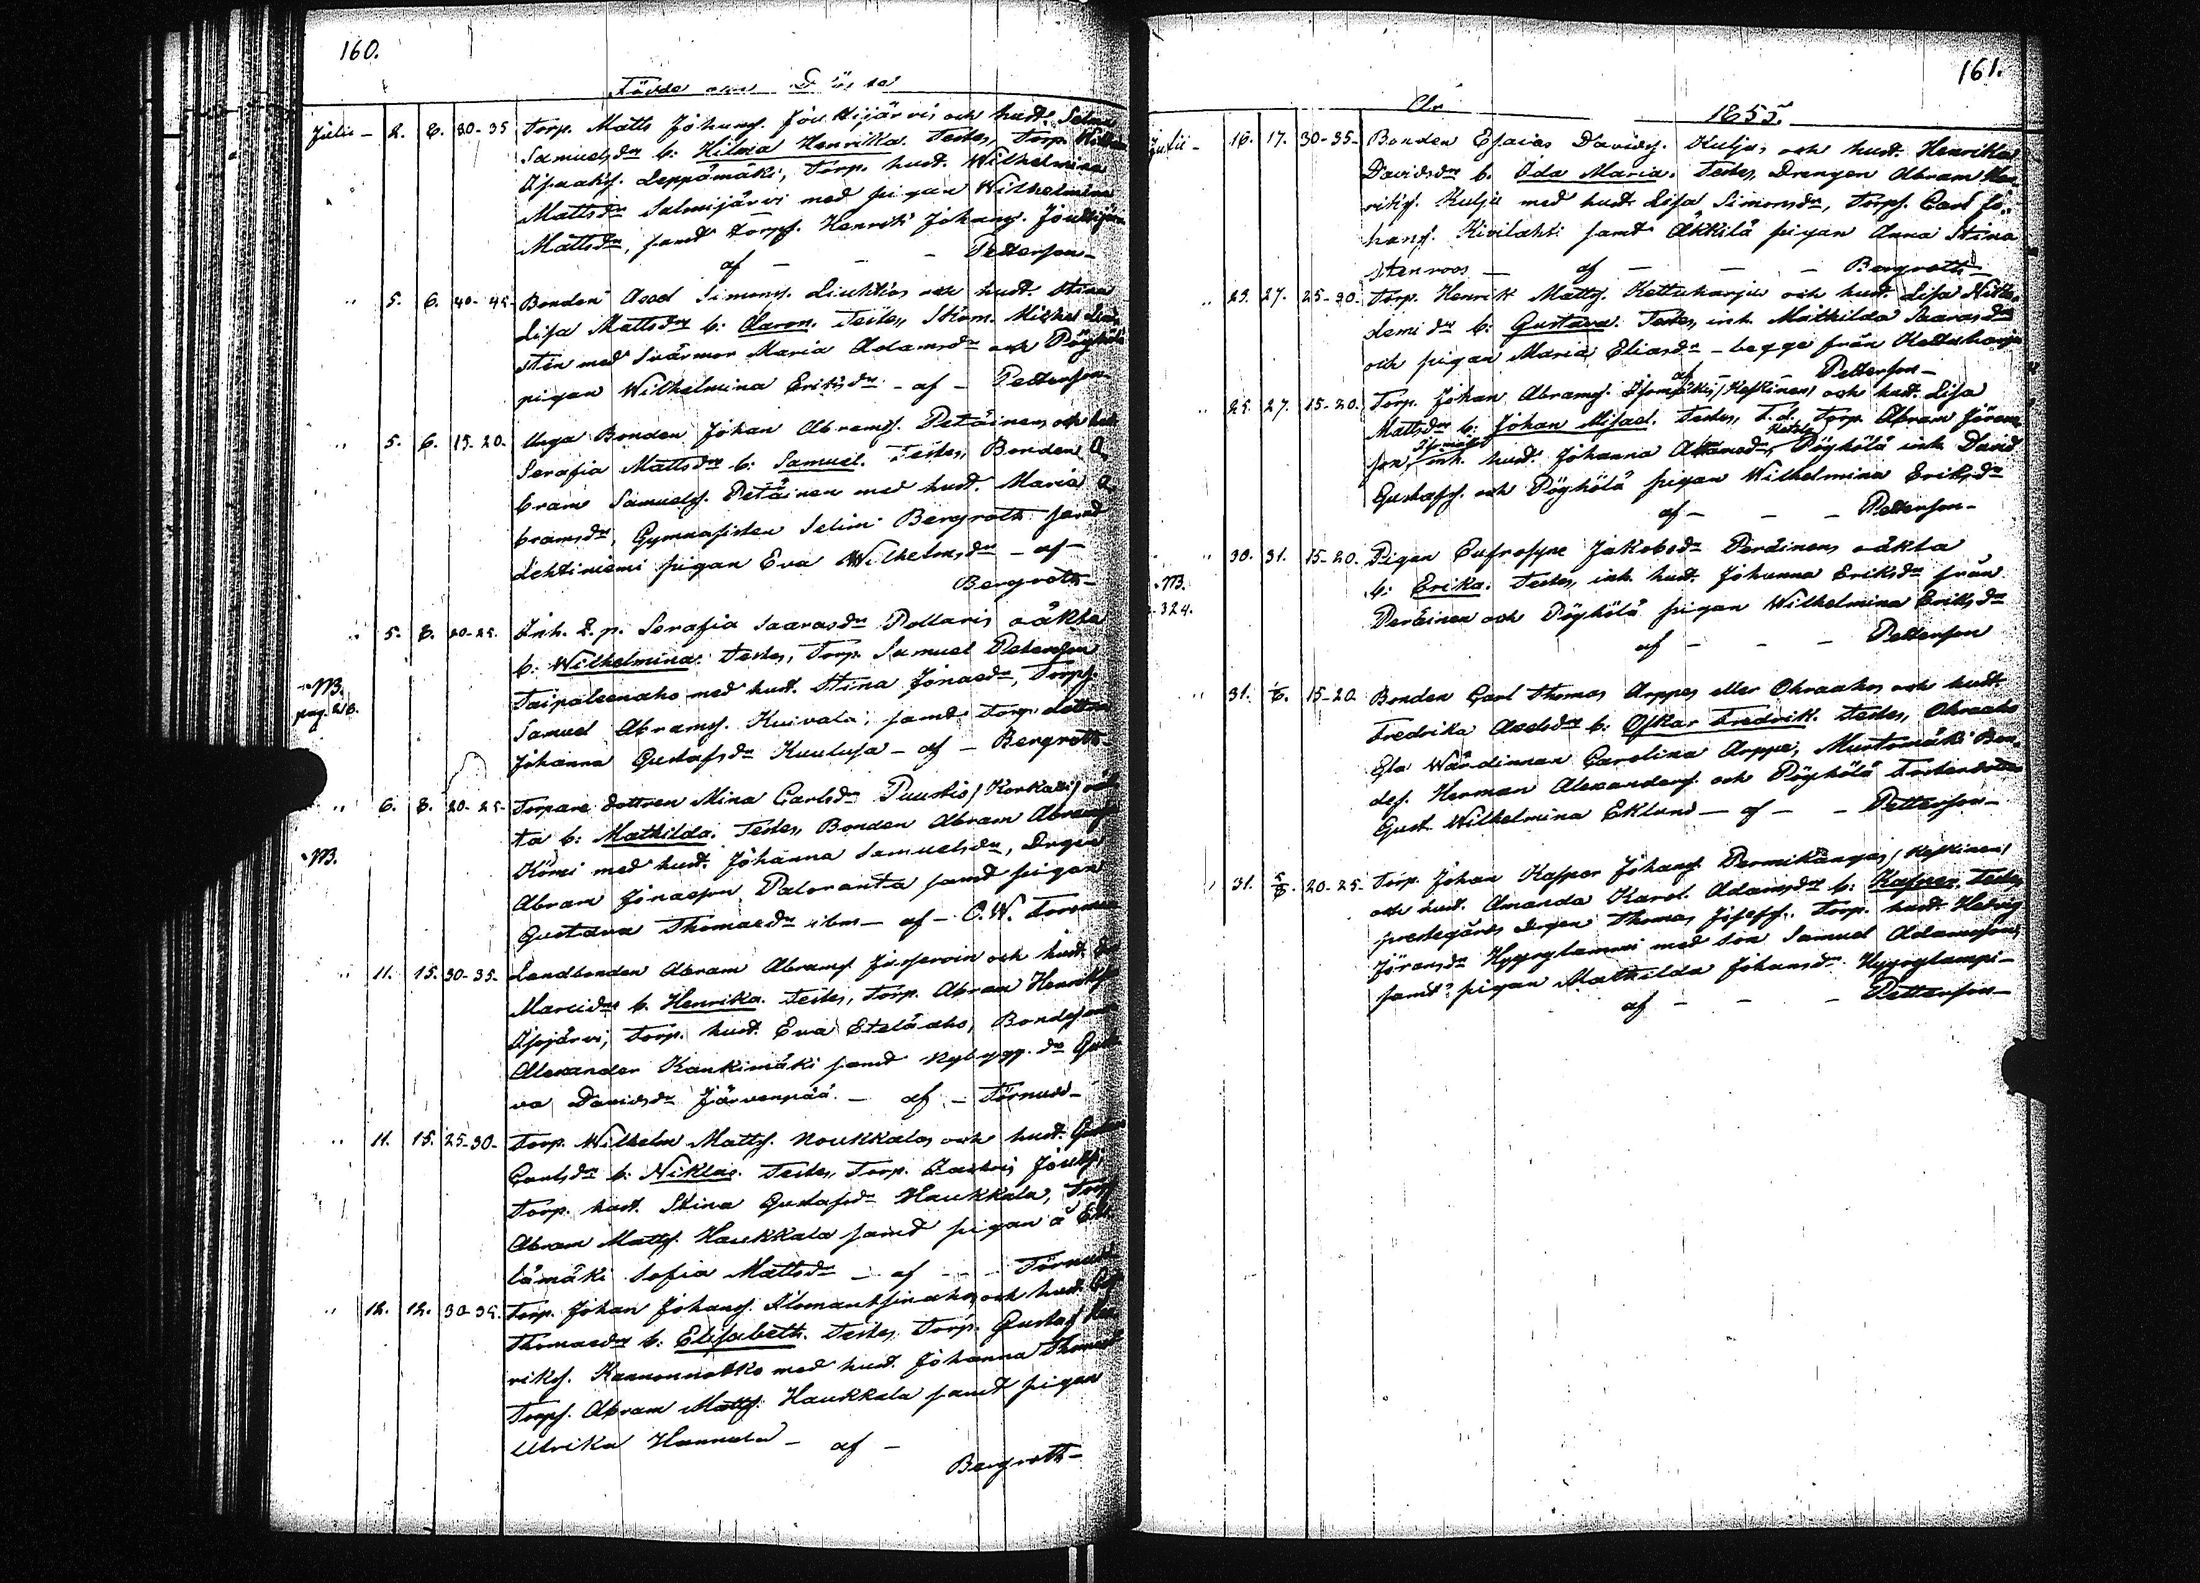 160.
Födde och Döpte
Julii - 2. 8. 30-35 Torp. Matts Johans. Joutsijärvi och hust. Selma
Samuelsdr b: Hilma Henrika. Testes, Torp.
Isaaks. Leppämäki, Torp. hust. Wilhelmina
Mattsdr Salmijärvi med pigan Wilhelmina
Mattsdr, samt Torps. Henrik Johans. Joutsijärvi
af - - - Petterson-
" 5. 6. 40-45 Bonden Axel Simons. och hust. Stina
Lisa Mattsdr b: Aaron. Testes,
med Svärmor Maria Adamsdr och Pöyhölä
pigan Wilhelmina Eriksdr - af - Petterson
" 5. 6. 15-20. Unga Bonden Johan Abrams. Petäinen, och hust
Serafia Mattsdr b: Samuel. Testes, Bonden A
bram Samuels. Petäinen med hust. Maria A
bramsdr, Gymnasisten Selim Bergroth samt
Lehtiniemi pigan Eva Wilhelmsdr - af -
Bergroth-
" 5. 8. 20-25. Inh. Serafia Saarasdr Pollari, oäkta
b: Wilhelmina. Testes, Torp. Samuel Peterson
Taipaleenaho med hust. Stina Jonaedr, Torps.
NB.
pag.
Samuel Abrams. Kuivala, samt Torp. dottren
Johanna Gustafsdr Kuulusa - af - Bergroth-
" 6. 8. 20-25- Torpare dottren Mina Carlsdr Puustio / Korkala / oäk
ta b: Mathilda. Testes, Bonden Abram Abramss
NB.
Körri med hust. Johanna Samuelsdr, Drgen
Abram Jonasson Paloranta samt pigan
Gustava Thomaedr ibm - af - O. W. Forsman
" 11. 15. 30-35- Landbonden Abram Abrams. och hust.
Marcidr b. Henrika. Testes, Torp. Abram Henrikss
Isojärvi, Torp. hust. Eva Eteläaho, Bondeson
Alexander Kankimäki samt Nybygg. dr Gusta
va Davidsdr Järvenpää. - af - Törnudd-
" 11. 15. 25-30- Torp. Wilhelm Matts. Noukkala, och hust. Gustava
Carlsdr b: Niklas. Testes, Torp. Zachris
Torp. hust. Stina Gustafsdr Haukkala, Torp
Abram Matts. Haukkala samt pigan å Ete
lämäki Sofia Mattsdr - af - - Törnudd
" 12. 12. 30-35. Torp. Johan Johans. Ilomantsinaho, och hust.
Thomaedr b: Elisabeth. Testes, Torp. Gustaf Hen
riks. Kannonnokko med hust. Johanna Thomaedr
Torps. Abram Matts. Haukkala samt pigan
Ulrika Hannula - af -
Bergroth-
161.
År 1855.
Julii - 16. 17. 30-35- Bonden Esaias Davids. Kulju, och hust. Henrika
Davidsdr b. Ida Maria. Testes, Drengen Abram Hen
riks. Kulju med hust. Lisa Simonsdr, Torps. Carl Jo-
hans. Kivilahti samt Äkkilä pigan Anna Stina
Stenroos - af - - - Bergroth-
" 23. 27. 25-30. Torp. Henrik Matts. Kettuharju och hust. Lisa Niko
demidr b: Gustava. Testes, inh. Mathilda Saarasdr
och pigan Maria Eliasdr - begge från Kettuharju
af - Petterson-
" 25. 27. 15-20. Torp. Johan Abrams. Isomäki, / Keskinen / och hust. Lisa
Mattsdr b: Johan Misael. Testes, t. d. Torp. Abram Jöran-
son, inh. hust. Johanna Pöyhölä inh. David
Gustafs. och Pöyhölä pigan Wilhelmina Eriksdr
af - - - Petterson-
" 30. 31. 15-20. Pigan Eufrosyne Jakobsdr Peräinen, oäkta
NB.
324.
b: Erika. Testes, inh. hust. Johanna Eriksdr från
Peräinen och Pöyhölä pigan Wilhelmina Eriksdr
af - - - Petterson
" 31. 1/8. 15-20 Bonden Carl Thomas Arppe, eller Ohraaho, och hust.
Fredrika Axelsdr b: Oskar Fredrik. Testes, Ohraaho
Wärdinnan Carolina Arppe, Murtomäki Bon-
des. Herman Alexanders. och Pöyhölä
Gust. Wilhelmina Eklund - af - - Petterson-
" 31. 5/8. 20-25- Torp. Johan Kasper Johans. Permikangas, / Keskinen /
och hust. Amanda Karol. Adamsdr b: Kasper. Testes,
prestegårds drgen Thomas Josefs. Torp. hust. Hedvig
Jöransdr Hyyryläinen med son Samuel Adamsson
samt pigan Mathilda Johansdr Hyyrylampi-
af - - - Petterson-